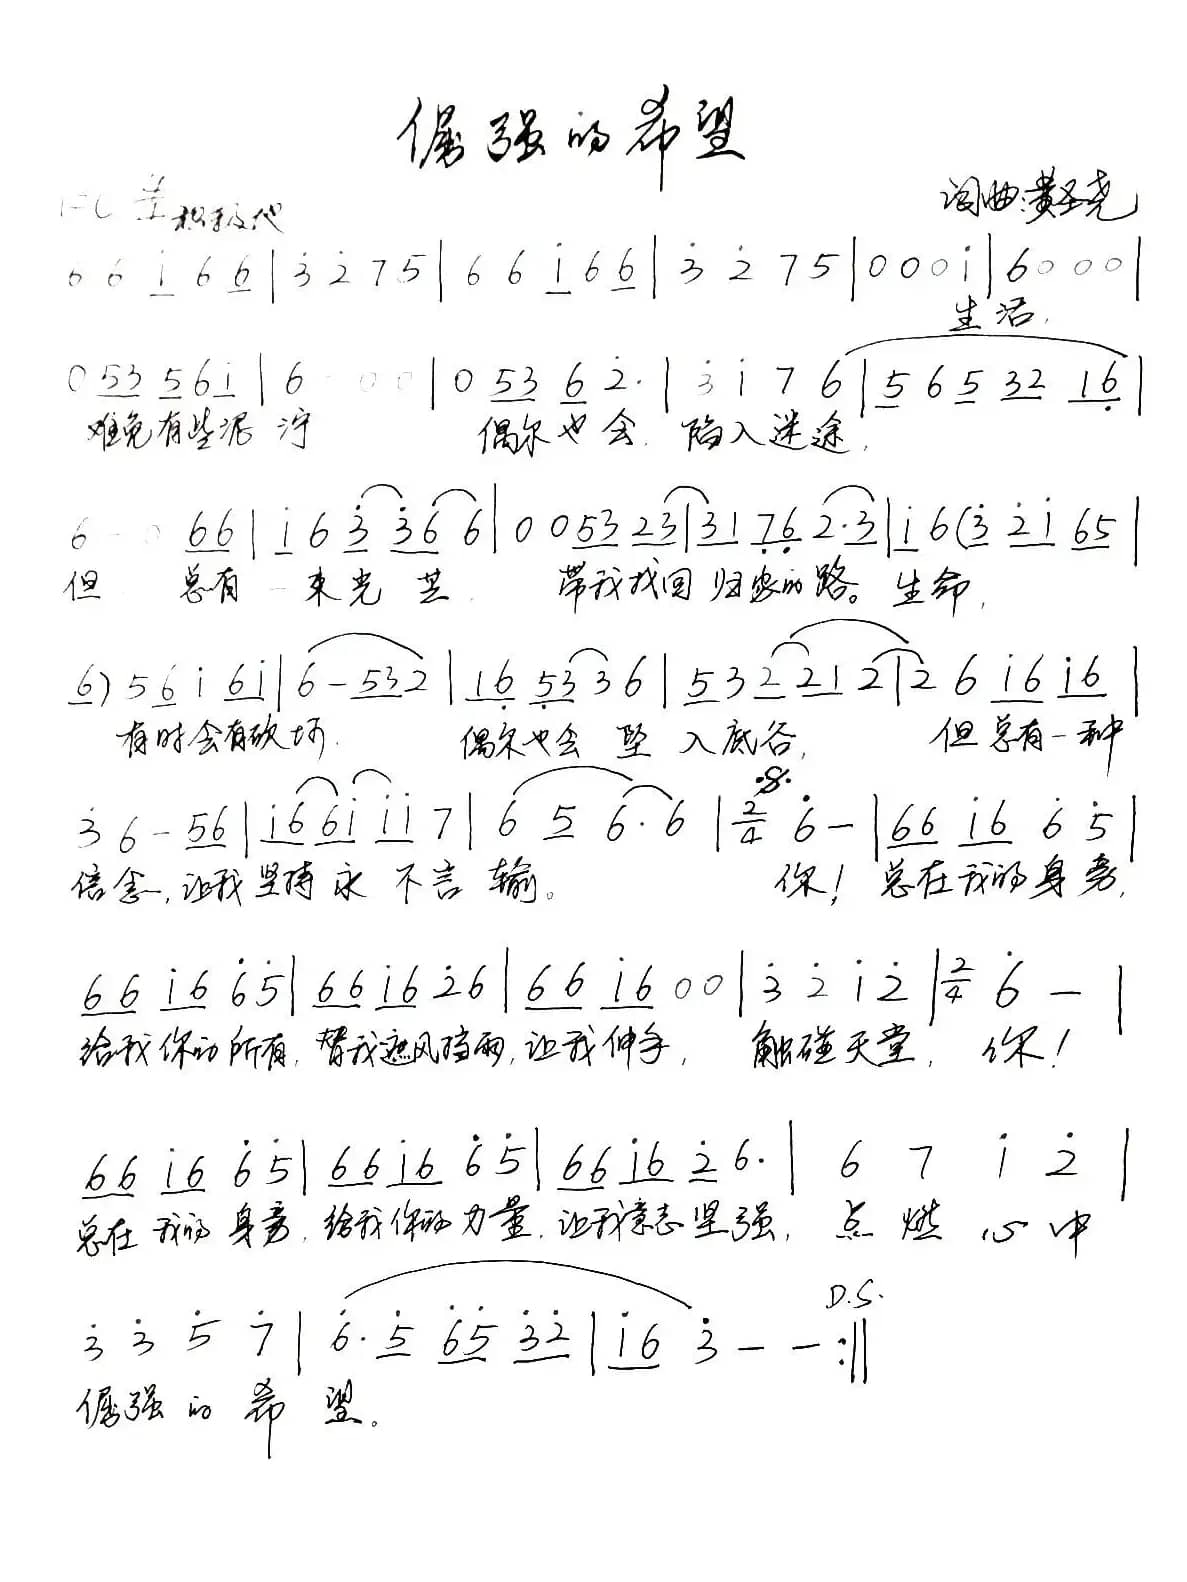 倔强的希望
词曲:黄圣尧
1=C 4/4 积极地
6 6 i 6 6 | 3 2 7 5 | 6 6 i 6 6 | 3 2 7 5 | 0 0 0 i | 6 0 0 0 |
生活,
0 53 5 6i | 6 - 0 0 | 0 53 6 2· | 3 i 7 6 | 5 6 5 32 16 |
难免有些泥泞 偶尔也会 陷入迷途,
6 - 0 66 | i 6 3 36 6 | 0 0 53 23 | 31 76 2·3 | i 6 (3 2i 65 |
但 总有一束光芒 带我找回归家的路。生命,
6) 5 6 i 6i | 6 - 532 | 16 53 3 6 | 5 3 2 21 2 | 2 6 i6 i6 |
有时会有砍坷 偶尔也会坠入底谷, 但总有一种
3 6 - 56 | i6 6i ii 7 | 6 5 6· 6 | 2/4 6 - | 66 i6 6 5 |
信念,让我坚持永不言输。 你!总在我的身旁,
66 i6 6 5 | 66 i6 2 6 | 66 i6 0 0 | 3 2 i 2 | 2/4 6 - |
给我你的所有,替我遮风挡雨,让我伸手, 触碰天堂, 你!
66 i6 6 5 | 66 i6 6 5 | 66 i6 2 6· | 6 7 i 2 |
总在我的身旁,给我你的力量,让我意志坚强,点燃心中
D.S.
3 3 5 7 | 6· 5 65 32 | i6 3 - - :||
倔强的希望。